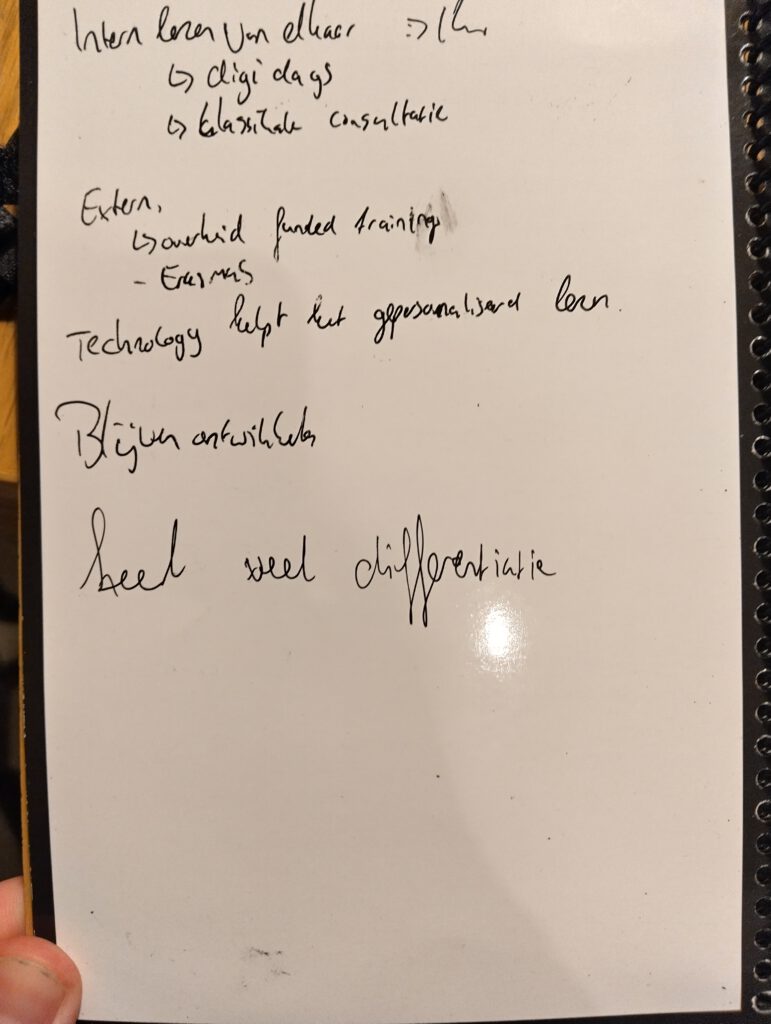 Intern leren van elkaar => 1hr
↳ digi dags
↳ klassikale consultatie
Extern,
↳ overheid funded training
- Erasmus
Technology helpt het gepersonaliseerd leren.
Blijven ontwikkelen
heel veel differentiatie